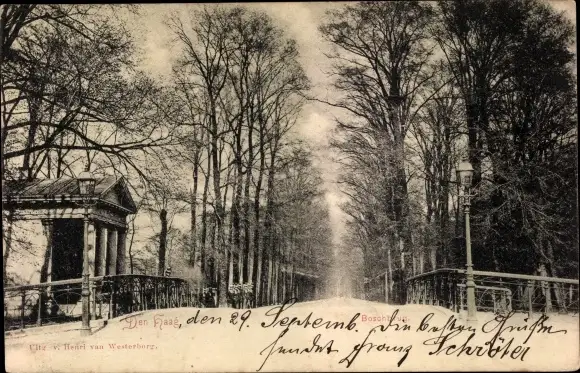 Den Haag, den 29. Septemb. Boschbrug. Die besten Grüße
Uitg. v. Henri van Westerborg. sendet Franz Schröter